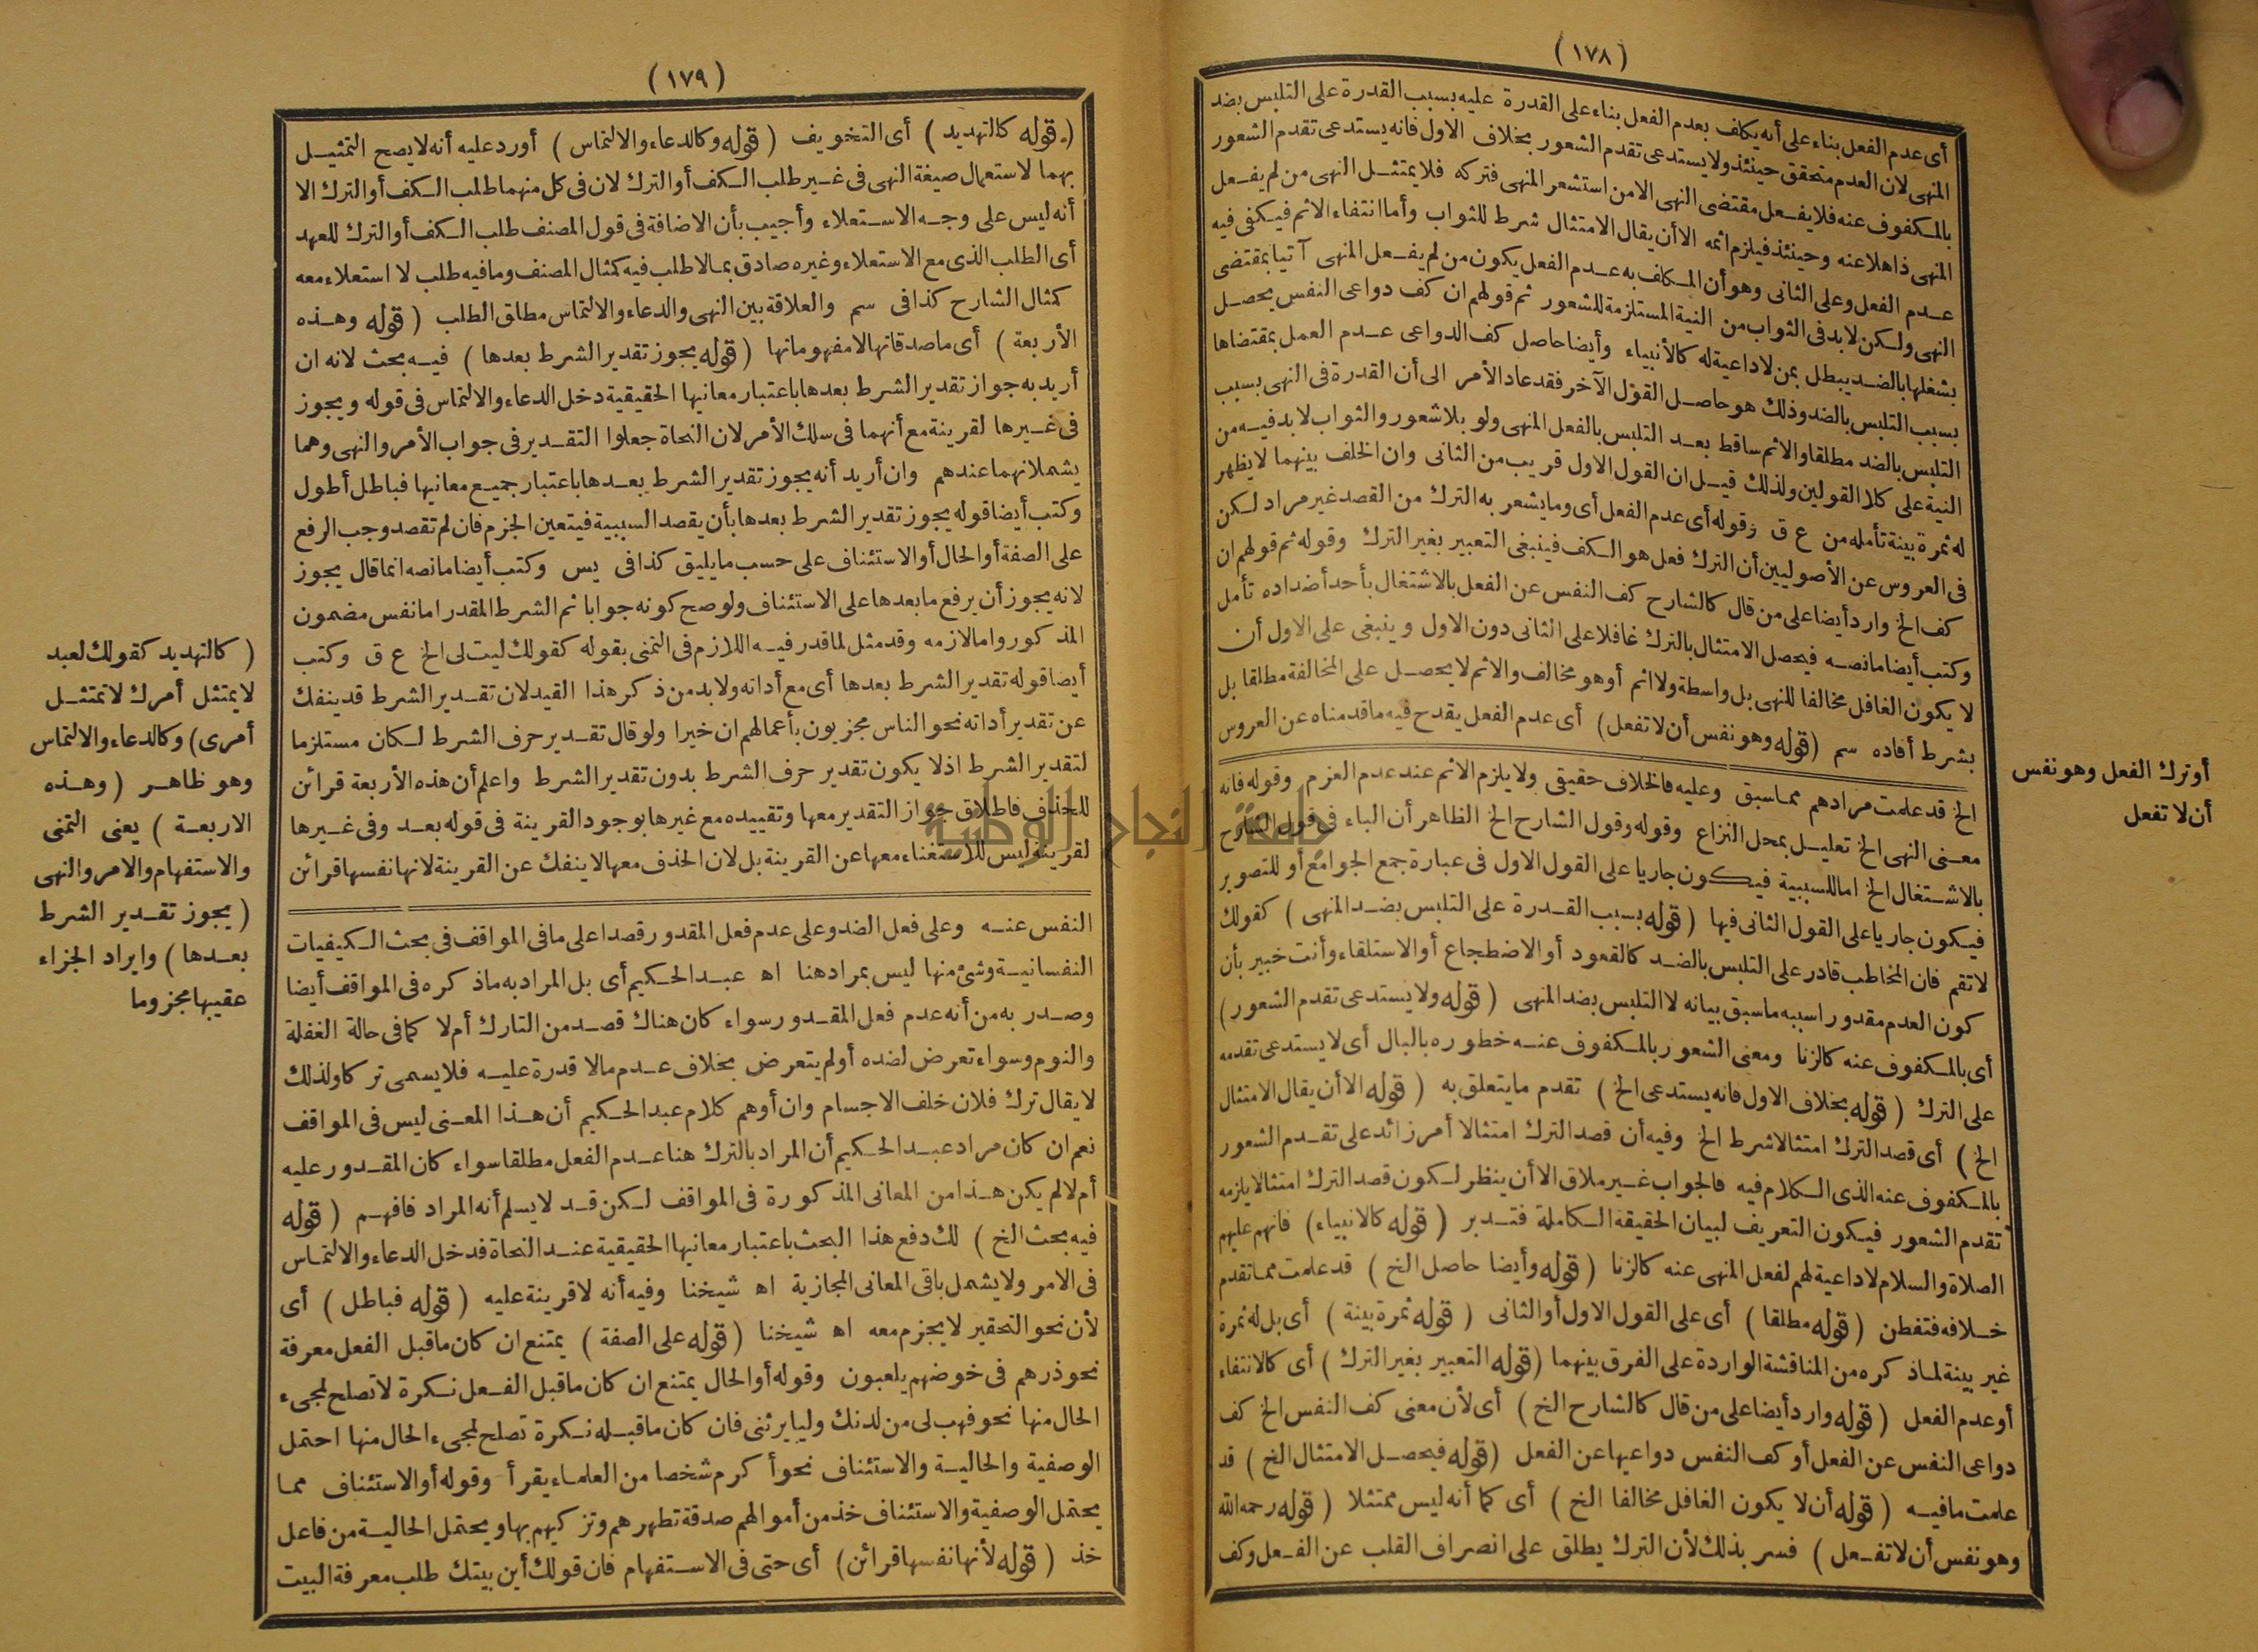 (١٧٨)
أى عدم الفعل بناء على أنه يكلف بعدم الفعل بناء على القدرة عليه بسبب القدرة على التلبس بضد
المنهى لان العدم متحقق حينئذ ولا يستدعى تقدم الشعور بخلاف الاول فانه يستدعى تقدم الشعور
بالمكفوف عنه فلا يفعل مقتضى النهى الا من استشعر المنهى فتركه فلا يمتثل النهى من لم يفعل
المنهى ذاهلا عنه وحينئذ فيلزم اثمه الا أن يقال الامتثال شرط للثواب وأما انتفاء الاثم فيكفى فيه
عدم الفعل وعلى الثانى وهو أن المكلف به عدم الفعل يكون من لم يفعل المنهى آتيا بمقتضى
النهى ولكن لابد فى الثواب من النية المستلزمة للشعور ثم قولهم ان كف دواعى النفس يحصل
بشغلها بالضد يبطل بمن لا داعية له كالأنبياء وأيضا حاصل كف الدواعى عدم العمل بمقتضاها
بسبب التلبس بالضد وذلك هو حاصل القول الآخر فقد عاد الأمر الى أن القدرة فى النهى بسبب
التلبس بالضد مطلقا والاثم ساقط بعد التلبس بالفعل المنهى ولو بلا شعور والثواب لابد فيه من
النية على كلا القولين ولذلك قيل ان القول الاول قريب من الثانى وان الخلف بينهما لا يظهر
له ثمرة بينة تأمله من ع ق وقوله أى عدم الفعل أى وما يشعر به الترك من القصد غير مراد لكن
فى العروس عن الأصوليين أن الترك فعل هو الكف فينبغى التعبير بغير الترك وقوله ثم قولهم ان
كف الخ وارد أيضا على من قال كالشارح كف النفس عن الفعل بالاشتغال بأحد أضداده تأمل
وكتب أيضا مانصه فيحصل الامتثال بالترك غافلا على الثانى دون الاول وينبغى على الاول أن
لا يكون الغافل مخالفا للنهى بل واسطة ولا اثم أو هو مخالف والاثم لا يحصل على المخالفة مطلقا بل
بشرط أفاده سم (قوله وهو نفس أن لا تفعل) أى عدم الفعل يقدح فيه ما قدمناه عن العروس
الخ قد علمت مرادهم مما سبق وعليه فالخلاف حقيقى ولا يلزم الاثم عند عدم العزم وقوله فانه
معنى النهى الخ تعليل بمحل النزاع وقوله وقول الشارح الخ الظاهر أن الباء فى قول الشارح
بالاشتغال الخ اما للسببية فيكون جاريا على القول الاول فى عبارة جمع الجوامع أو للتصوير
فيكون جاريا على القول الثانى فيها (قوله بسبب القدرة على التلبس بضد المنهى) كقولك
لا تقم فان المخاطب قادر على التلبس بالضد كالقعود أو الاضطجاع أو الاستلقاء وأنت خبير بأن
كون العدم مقدورا سببه ماسبق بيانه لا التلبس بضد المنهى (قوله ولا يستدعى تقدم الشعور)
أى بالمكفوف عنه كالزنا ومعنى الشعور بالمكفوف عنه خطوره بالبال أى لا يستدعى تقدمه
على الترك (قوله بخلاف الاول فانه يستدعى الخ) تقدم ما يتعلق به (قوله الا أن يقال الامتثال
الخ) أى قصد الترك امتثالا شرط الخ وفيه أن قصد الترك امتثالا أمر زائد على تقدم الشعور
بالمكفوف عنه الذى الكلام فيه فالجواب غير ملاق الا أن ينظر لكون قصد الترك امتثالا يلزمه
تقدم الشعور فيكون التعريف لبيان الحقيقة الكاملة فتدبر (قوله كالانبياء) فانهم عليهم
الصلاة والسلام لا داعية لهم لفعل المنهى عنه كالزنا (قوله وأيضا حاصل الخ) قد علمت مما تقدم
خلافه فتفطن (قوله مطلقا) أى على القول الاول أو الثانى (قوله ثمرة بينة) أى بل له ثمرة
غير بينة لما ذكره من المناقشة الواردة على الفرق بينهما (قوله التعبير بغير الترك) أى كالانتفاء
أو عدم الفعل (قوله وارد أيضا على من قال كالشارح الخ) أى لأن معنى كف النفس الخ كف
دواعى النفس عن الفعل أو كف النفس دواعيها عن الفعل (قوله فيحصل الامتثال الخ) قد
علمت مافيه (قوله أن لا يكون الغافل مخالفا الخ) أى كما أنه ليس ممتثلا (قوله رحمه الله
وهو نفس أن لا تفعل) فسر بذلك لأن الترك يطلق على انصراف القلب عن الفعل وكف
أو ترك الفعل وهو نفس
أن لا تفعل
(١٧٩)
(قوله كالتهديد) أى التخويف (قوله وكالدعاء والالتماس) أورد عليه أنه لا يصح التمثيل
بهما لاستعمال صيغة النهى فى غير طلب الكف أو الترك لان فى كل منهما طلب الكف أو الترك الا
أنه ليس على وجه الاستعلاء وأجيب بأن الاضافة فى قول المصنف طلب الكف أو الترك للعهد
أى الطلب الذى مع الاستعلاء وغيره صادق بما لا طلب فيه كمثال المصنف وما فيه طلب لا استعلاء معه
كمثال الشارح كذا فى سم والعلاقة بين النهى والدعاء والالتماس مطلق الطلب (قوله وهذه
الأربعة) أى ما صدقاتها لا مفهوماتها (قوله يجوز تقدير الشرط بعدها) فيه بحث لانه ان
أريد به جواز تقدير الشرط بعدها باعتبار معانيها الحقيقية دخل الدعاء والالتماس فى قوله ويجوز
فى غيرها لقرينة مع أنهما فى سلك الأمر لان النحاة جعلوا التقدير فى جواب الأمر والنهى وهما
يشملانهما عندهم وان أريد أنه يجوز تقدير الشرط بعدها باعتبار جميع معانيها فباطل أطول
وكتب أيضا قوله يجوز تقدير الشرط بعدها بأن يقصد السببية فيتعين الجزم فان لم تقصد وجب الرفع
على الصفة أو الحال أو الاستئناف على حسب ما يليق كذا فى يس وكتب أيضا مانصه انما قال يجوز
لانه يجوز أن يرفع ما بعدها على الاستئناف ولو صح كونه جوابا ثم الشرط المقدر اما نفس مضمون
المذكور واما لازمه وقد مثل لما قدر فيه اللازم فى التمنى بقوله كقولك ليت لى الخ ع ق وكتب
أيضا قوله تقدير الشرط بعدها أى مع أداته ولابد من ذكر هذا القيد لان تقدير الشرط قد ينفك
عن تقدير أداته نحو الناس مجزيون بأعمالهم ان خيرا ولو قال تقدير حرف الشرط لكان مستلزما
لتقدير الشرط اذ لا يكون تقدير حرف الشرط بدون تقدير الشرط واعلم أن هذه الأربعة قرائن
للحذف فاطلاق جواز التقدير معها وتقييده مع غيرها بوجود القرينة فى قوله بعد وفى غيرها
لقرينة ليس للاستغناء معها عن القرينة بل لان الحذف معها لا ينفك عن القرينة لانها نفسها قرائن
النفس عنه وعلى فعل الضد وعلى عدم فعل المقدور قصدا على ما فى المواقف فى بحث الكيفيات
النفسانية وشئ منها ليس بمراد هنا اه عبد الحكيم أى بل المراد به ماذكره فى المواقف أيضا
وصدر به من أنه عدم فعل المقدور سواء كان هناك قصد من التارك أم لا كما فى حالة الغفلة
والنوم وسواء تعرض لضده أو لم يتعرض بخلاف عدم مالا قدرة عليه فلا يسمى تركا ولذلك
لا يقال ترك فلان خلف الاجسام وان أوهم كلام عبد الحكيم أن هذا المعنى ليس فى المواقف
نعم ان كان مراد عبد الحكيم أن المراد بالترك هنا عدم الفعل مطلقا سواء كان المقدور عليه
أم لا لم يكن هذا من المعانى المذكورة فى المواقف لكن قد لا يسلم أنه المراد فافهم (قوله
فيه بحث الخ) لك دفع هذا البحث باعتبار معانيها الحقيقية عند النحاة فدخل الدعاء والالتماس
فى الامر ولا يشمل باقى المعانى المجازية اه شيخنا وفيه أنه لا قرينة عليه (قوله فباطل) أى
لأن نحو التحقير لا يجزم معه اه شيخنا (قوله على الصفة) يمتنع ان كان ما قبل الفعل معرفة
نحو ذرهم فى خوضهم يلعبون وقوله أو الحال يمتنع ان كان ما قبل الفعل نكرة لا تصلح لمجىء
الحال منها نحو فهب لى من لدنك وليا يرثنى فان كان ما قبله نكرة تصلح لمجىء الحال منها احتمل
الوصفية والحالية والاستئناف نحو أكرم شخصا من العلماء يقرأ وقوله أو الاستئناف مما
يحتمل الوصفية والاستئناف خذ من أموالهم صدقة تطهرهم وتزكيهم بها ويحتمل الحالية من فاعل
خذ (قوله لأنها نفسها قرائن) أى حتى فى الاستفهام فان قولك أين بيتك طلب معرفة البيت
(كالتهديد كقولك لعبد
لا يمتثل أمرك لا تمتثل
أمرى) وكالدعاء والالتماس
وهو ظاهر (وهذه
الاربعة) يعنى التمنى
والاستفهام والامر والنهى
(يجوز تقدير الشرط
بعدها) وايراد الجزاء
عقيبها مجزوما
جامعة النجاح الوطنية